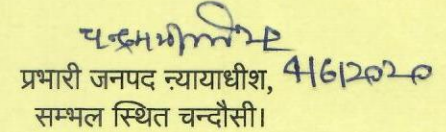 प्रभारी जनपद न्यायाधीश, 4/6/2020
सम्भल स्थित चन्दौसी।